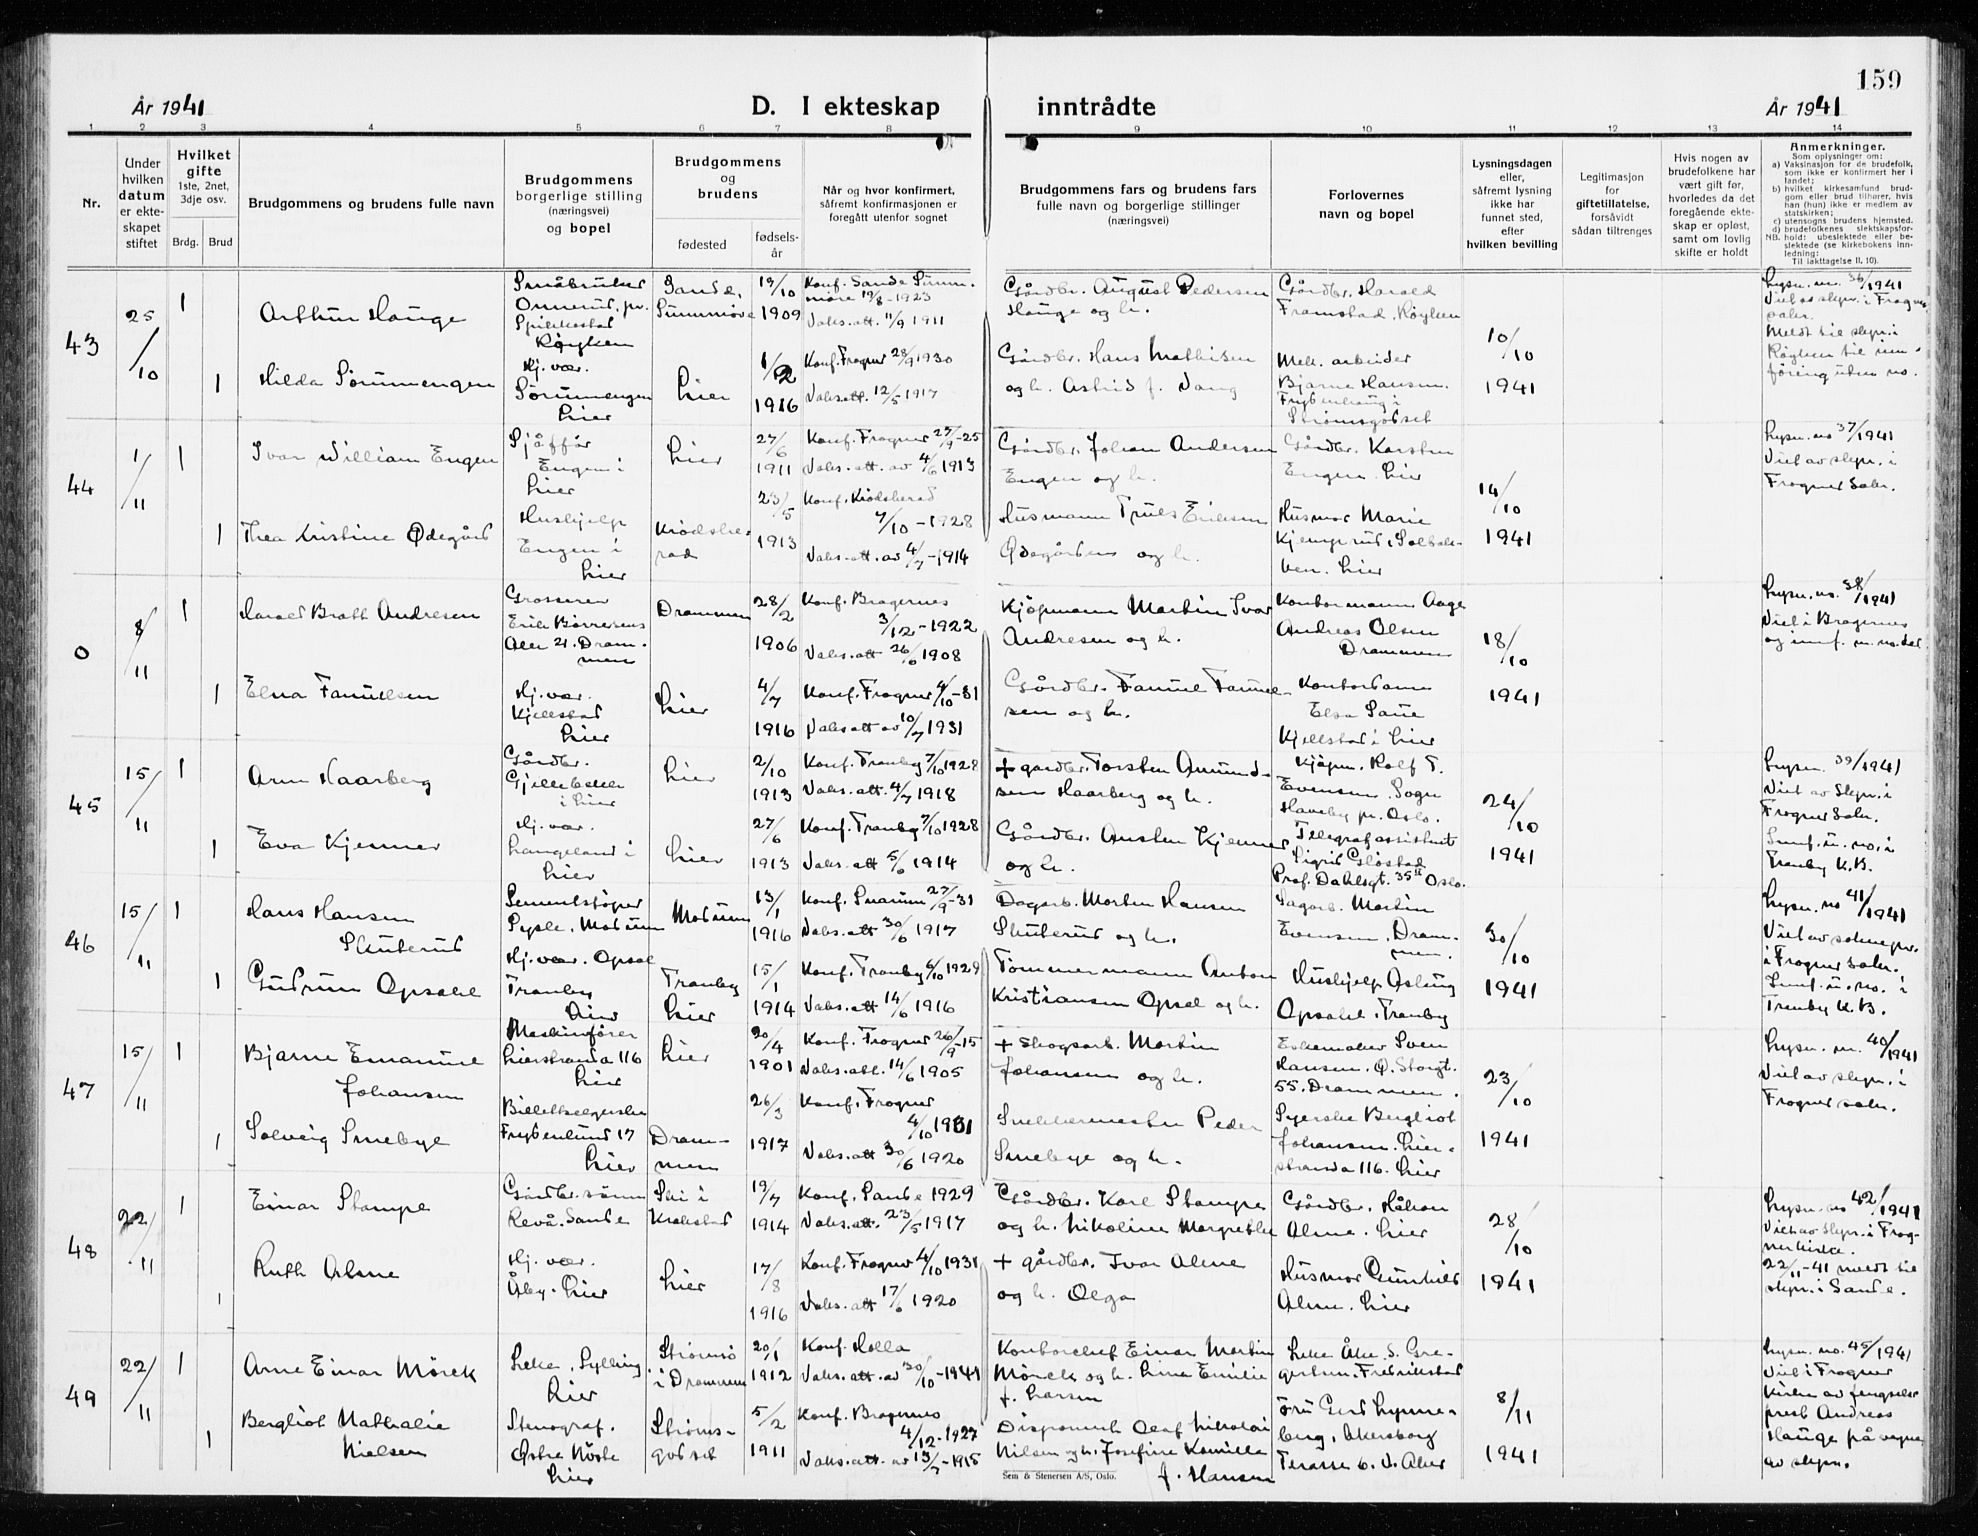 159
År 1941
D. I ekteskap inntrådte
År 1941
1 2 3 4 5 6 7 8 9 10 11 12 13 14
Nr.
Under
hvilken
datum
er ekte-
skapet
stiftet
Hvilket
gifte
1ste, 2net,
3dje osv.
Brdg. Brud
Brudgommens og brudens fulle navn
Brudgommens
borgerlige stilling
(næringsvei)
og bopel
Brudgommens
og
brudens
fødested
fødsels-
år
Når og hvor konfirmert,
såfremt konfirmasjonen er
foregått utenfor sognet
Brudgommens fars og brudens fars
fulle navn og borgerlige stillinger
(næringsvei)
Forlovernes
navn og bopel
Lysningsdagen
eller,
såfremt lysning
ikke har
funnet sted,
efter
hvilken bevilling
Legitimasjon
for
giftetillatelse,
forsåvidt
sådan tiltrenges
Hvis nogen av
brudefolkene har
vært gift før,
hvorledes da det
foregående ekte-
skap er opløst,
samt om lovlig
skifte er holdt
Anmerkninger.
Som oplysninger om:
a) Vaksinasjon for de brudefolk,
som ikke er konfirmert her i
landet;
b) hvilket kirkesamfund brud-
gom eller brud tilhører, hvis
han (hun) ikke er medlem av
statskirken;
c) utensogns brudens hjemsted.
d) brudefolkenes slektskapsfor-
NB. hold: ubeslektede eller be-
slektede (se kirkebokens inn-
ledning:
Til iakttagelse II. 10).
43
25/10
1
Arthur Hauge
Småbruker
Spikkestad
Røyken
Sande,
Sunnmøre
19/10
1909
Konf. Sande Sunn-
møre 19/8-1923
Vaks.att. 11/9 1911
Gårdbr. August Pedersen
Hauge og h.
Gårdbr. Harald
Framstad, Røyken
10/10
1941
Lysn. nr. 36/1941
Viet av slspr. i Frogner
Meldt til slspr. i
Røyken til inn-
føring uten no.
1
Hilda Sørumengen
Hj. vær.
Sørumengen
Lier
Lier
1/2
1916
Konf. Frogner 28/9 1930
Vaks.att. 12/5 1917
Gårdbr. Hans Mathisen
og h. Astrid f. Vang
Mek. arbeider
Bjarne Hansen.
Strømsgodset
44
1/11
1
Ivar William Engen
Sjåffør
Engen i
Lier
Lier
27/6
1911
Konf. Frogner 27/9-25
Vaks.att. av 4/6 1913
Gårdbr. Johan Andersen
Engen og h.
Gårdbr. Karsten
Engen. Lier
14/10
1941
Lysn. no 37/1941
Viet av slspr. i
Frogner sokn.
1
Thea Kristine Ødegård
Hushjelp
Engen i
Lier
Krødshe-
rad
23/5
1913
Konf. Krødsherad
7/10-1928
Vaks.att. av 4/7-1914
Husmann Truls Eriksen
Ødegården og h.
Husmor Marie
Kjemprud, Solbak-
ken. Lier
0
8/11
1
Harald Brath Andresen
Grosserer
Erik Børresens
Alle 21. Dram-
men
Drammen
28/2
1906
Konf. Bragernes
3/12-1922
Vaks.att 26/6 1908
Kjøpmann Martin Ivar
Andresen og h.
Kontormann Aage
Andreas Olsen
Drammen
18/10
1941
Lysn. no. 38/1941
Viet i Bragernes
og innf. m. no. der
1
Elna Fanuelsen
Hj. vær.
Kjellstad
Lier
Lier
4/7
1916
Konf. Frogner 4/10-31
Vaks.att av 10/7 1931
Gårdbr. Fanuel Fanuel-
sen og h.
Kontordame
Elsa Saue
Kjellstad i Lier
45
15/11
1
Arne Haarberg
Gårdbr.
Gjellebekk
i Lier
Lier
2/10
1913
Konf. Tranby 7/10 1928
Vaks.att. 4/7 1918
+ gårdbr. Torsten Amund-
sen Haarberg og h.
Kjøpm. Rolf T.
Evensen. Sogn
Haveby pr. Oslo.
24/10
1941
Lysn. 39/1941
Viet av slspr. i
Frogner sokn.
Innf. u. no. i
Tranby K.B.
1
Eva Kjenner
Hj. vær.
Langeland i
Lier
Lier
27/6
1913
Konf. Tranby 7/10 1928
Vaks.att 5/6 1914
Gårdbr. Ansten Kjenner
og h.
Telegrafassistent
Sigrid Gløstad
Prof. Dahlsgt. 35 II Oslo.
46
15/11
1
Hans Hansen
Skuterud
Sysle. Modum
Modum
13/1
1916
Konf. Snarum 27/9-31
Vaks.att 30/6 1917
Dagarb. Morten Hansen
Skuterud og h.
Sagarb. Martin
Evensen. Dram-
men.
30/10
1941
Lysn. no 41/1941
Viet av sokneprs.
i Frogner sokn.
Innf. u. no. i
Tranby K.B.
1
Gudrun Opsahl
Hj. vær. Opsal
Tranby
Lier
Tranby
Lier
15/1
1914
Konf. Tranby 6/10 1929
Vaks.att 14/6 1916
Tømmermann Anton
Kristiansen Opsal og h.
Hushjelp Aslaug
Opsahl. Tranby
47
15/11
1
Bjarne Emanuel
Johansen
Maskinfører
Lierstranda 116
Lier
Lier
20/4
1901
Konf. Frogner 26/9-15
Vaks.att. 14/6 1905
+ skogsarb. Martin
Johansen og h.
Eskemaker Sven
Hansen. Ø. Storgt.
55. Drammen.
23/10
1941
Lysn. nr. 40/1941
Viet av slspr. i
Frogner sokn.
1
Solveig Smebye
Billettselgerske
Frydenlund 17
Lier
Dram-
men
26/3
1917
Konf. Frogner
4/10 1931
Vaks.att 30/6 1920
Snekkermester Peder
Smebye og h.
Syerske Bergliot
Johansen. Lier-
stranda 116. Lier
48
22/11
1
Einar Stampe
Gårdbr. sønn
Revå. Sande
Ski i
Kråkstad
19/7
1914
Konf. Sande 1929
Vaks.att. 23/5 1917
Gårdbr. Karl Stampe
og h. Nikoline Margrethe
Gårdbr. Håkon
Alme. Lier
28/10
1941
Lysn. no 42/1941
Viet av slspr. i Frog-
ner kirke.
22/11-41 meldt til
slspr. i Sande.
1
Ruth Alme
Hj. vær.
Åby. Lier
Lier
17/8
1916
Konf. Frogner 4/10 1931
Vaks.att 17/6 1920
+ gårdbr. Ivar Alme
og h. Olga
Husmor Gunhild
Alme. Lier
49
22/11
1
Arne Einar Mörck
Leke. Sylling
Lier
Strømsø
i Drammen
20/1
1912
Konf. Holla
Vaks.att. av 30/10-1941
Kontorchef Einar Martin
Mörck og h. Lina Emilie
f. Larsen
Leke Åke S. Gre-
gersen. Fredrikstad
8/11
1941
Lysn. no. 45/1941
Viet i Frogner
kirke av fengsels-
prest Andreas
Hauge på vegne
av slspr.
1
Bergliot Nathalie
Nielsen
Stenograf.
Østre Nøste
Lier
Strøms-
godset
5/2
1911
Konf. Bragernes
4/12-1927
Vaks.att. av 13/7-1915
Disponent Olaf Nikolai
Nilsen og h. Josefine Kamilla
f. Hansen
Fru Gerd Lynne-
berg, Akersborg
Terasse 6. V. Aker
Sem & Stenersen A/S, Oslo.